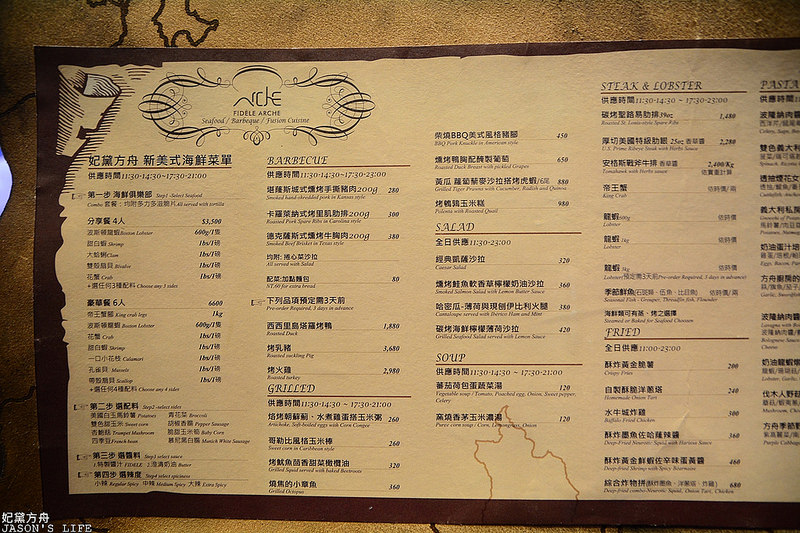 Arche
FIDÈLE ARCHE
Seafood / Barbeque / Fusion Cuisine
妃黛方舟 新美式海鮮菜單
供應時間11:30-14:30~17:30-21:00
第一步 海鮮俱樂部 Step1 -Select Seafood
Combo 套餐：均附多力多滋脆片All served with tortilla
分享餐 4人 $3,500
波斯頓龍蝦Boston Lobster 600g/1隻
甜白蝦 Shrimp 1lbs/1磅
大蛤蜊Clam 1lbs/1磅
雙殼扇貝 Bivalve 1lbs/1磅
花蟹 Crab 1lbs/1磅
+選任何3種配料 Choose any 3 sides
豪華餐 6人 6600
帝王蟹腳 King crab legs 1kg
波斯頓龍蝦 Boston Lobster 600g/1隻
花蟹 Crab 1lbs/1磅
甜白蝦 Shrimp 1lbs/1磅
一口小花枝 Calamari 1lbs/1磅
孔雀貝 Mussels 1lbs/1磅
帶殼扇貝 Scallop 1lbs/1磅
+選任何4種配料 Choose any 4 sides
第二步 選配料 Step2 -select sides
美國白玉馬鈴薯 Potatoes 青花菜 Broccoli
雙色甜玉米 Sweet corn 胡椒香腸 Pepper Sausage
杏鮑菇 Trumpet Mushroom 脆甜玉米筍 Baby Corn
四季豆French bean 慕尼黑白腸 Munich White Sausage
第三步 選醬料 Step3 select sauce
1.特製醬汁 FIDÈLE 2.澄清奶油 Butter
第四步 選辣度 Step4 select spiciness
小辣 Regular Spicy 中辣 Medium Spicy 大辣 Extra Spicy
BARBECUE
供應時間11:30-14:30 ~ 17:30-23:00
堪薩斯城式燻烤手撕豬肉200g 280
Smoked hand-shredded pork in Kansas style
卡羅萊納式烤里肌肋排200g 300
Roasted Pork Spare Ribs in Carolina style
德克薩斯式燻烤牛胸肉200g 380
Smoked Beef Brisket in Texas style
均附: 捲心菜沙拉
All served with Salad
配菜:加點麵包 80
NT.80 for extra bread
下列品項預定需3天前
Pre-order Required, 3 days in advance
西西里島塔羅烤鴨 1,880
Roasted Duck
烤乳豬 3,680
Roasted suckling Pig
烤火雞 2,980
Roasted turkey
GRILLED
供應時間11:30-14:30 ~ 17:30-21:00
焙烤朝鮮薊、水煮雞蛋搭玉米粥 260
Artichoke, Soft-boiled eggs with Corn Congee
哥勒比風格玉米棒 260
Sweet corn in Caribbean style
烤魷魚茴香甜菜橄欖油 320
Grilled Squid served with baked beetroots
燒焦的小章魚 360
Grilled Octopus
柴燒BBQ美式風格豬腳 450
BBQ Pork Knuckle in American style
燻烤鴨胸配醃製葡萄 650
Roasted Duck Breast with pickled Grapes
黃瓜 蘿蔔藜麥沙拉搭烤虎蝦/6尾 880
Grilled Tiger Prawns with Cucumber, Radish and Quinoa
烤鵪鶉玉米糕 980
Polenta with Roasted Quail
SALAD
全日供應11:30-23:00
經典凱薩沙拉 320
Caesar Salad
燻烤鮭魚軟香草檸檬奶油沙拉 360
Smoked Salmon Salad with Lemon Butter Sauce
哈密瓜-薄荷與現刨伊比利火腿 380
Cantaloupe served with Iberico Ham and Mint
碳烤海鮮檸檬薄荷沙拉 420
Grilled Seafood Salad served with Lemon Sauce
SOUP
供應時間11:30-14:30 ~ 17:30-21:00
蕃茄荷包蛋蔬菜湯 120
Vegetable soup / Tomato, Poached egg, Onion, Sweet pepper,
Celery
窯燒香茅玉米濃湯 120
Puree corn soup / Corn, Lemongrass, Onion
STEAK & LOBSTER
供應時間11:30-14:30 ~ 17:30-23:00
碳烤聖路易肋排39oz 1,480
Roasted St. Louis-style Spare Ribs
厚切美國特級肋眼 25oz 香草醬 2,280
U.S. Prime Ribeye Steak with Herbs Sauce
安格斯戰斧牛排 香草醬 2,400/Kg
Tomahawk with Herbs sauce 依實重計算
帝王蟹 依時價
King Crab
龍蝦600g 依時價
Lobster
龍蝦1kg 依時價
Lobster
龍蝦3kg 依時價
Lobster(預定需3天前Pre-order Required, 3 days in advance)
季節鮮魚(石斑類、伍魚、比目魚) 依時價/兩
Seasonal Fish - Grouper, Threadfin fish, Flounder
海鮮類可有蒸、烤之選擇
Steamed or Baked for Seafood Choosen
FRIED
全日供應11:00-23:00
酥炸黃金脆薯 200
Crispy Fries
自製酥脆洋蔥塔 240
Homemade Onion Tart
水牛城炸雞 300
Buffalo Fried Chicken
酥炸墨魚佐哈薩辣醬 360
酥炸黃金鮮蝦佐辛味蛋黃醬 460
綜合炸物拼(酥炸墨魚、洋蔥塔、炸雞) 680
PASTA
妃黛方舟
JASON'S LIFE